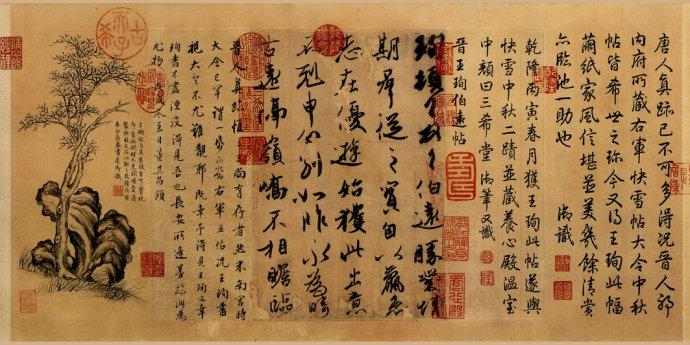 唐人真跡已不可多得況晉人耶
內府所藏右軍快雪帖大令中秋
帖皆希世之珍今又得王珣此幅
繭紙家風信堪並美幾餘清賞
亦臨池一助也 御識
乾隆丙寅春月獲王珣此帖遂與
快雪中秋二蹟並藏養心殿溫室
中顏曰三希堂 御筆又識
晉王珣伯遠帖
珣頓首頓首伯遠勝業情
期群從之寶自以羸患
志在優遊始獲此出意
不剋申分別如昨永為疇
古遠隔嶺嶠不相瞻臨
晉人真跡惟二王尚有存者然米南宮時
大令已罕謂一紙可當右軍五帖況王珣書
視大令不尤難覯耶既幸予得見王珣又幸
珣書不盡湮沒得見吾也長安所逢墨跡此為
尤物戊戌冬至日董其昌題
古希天子